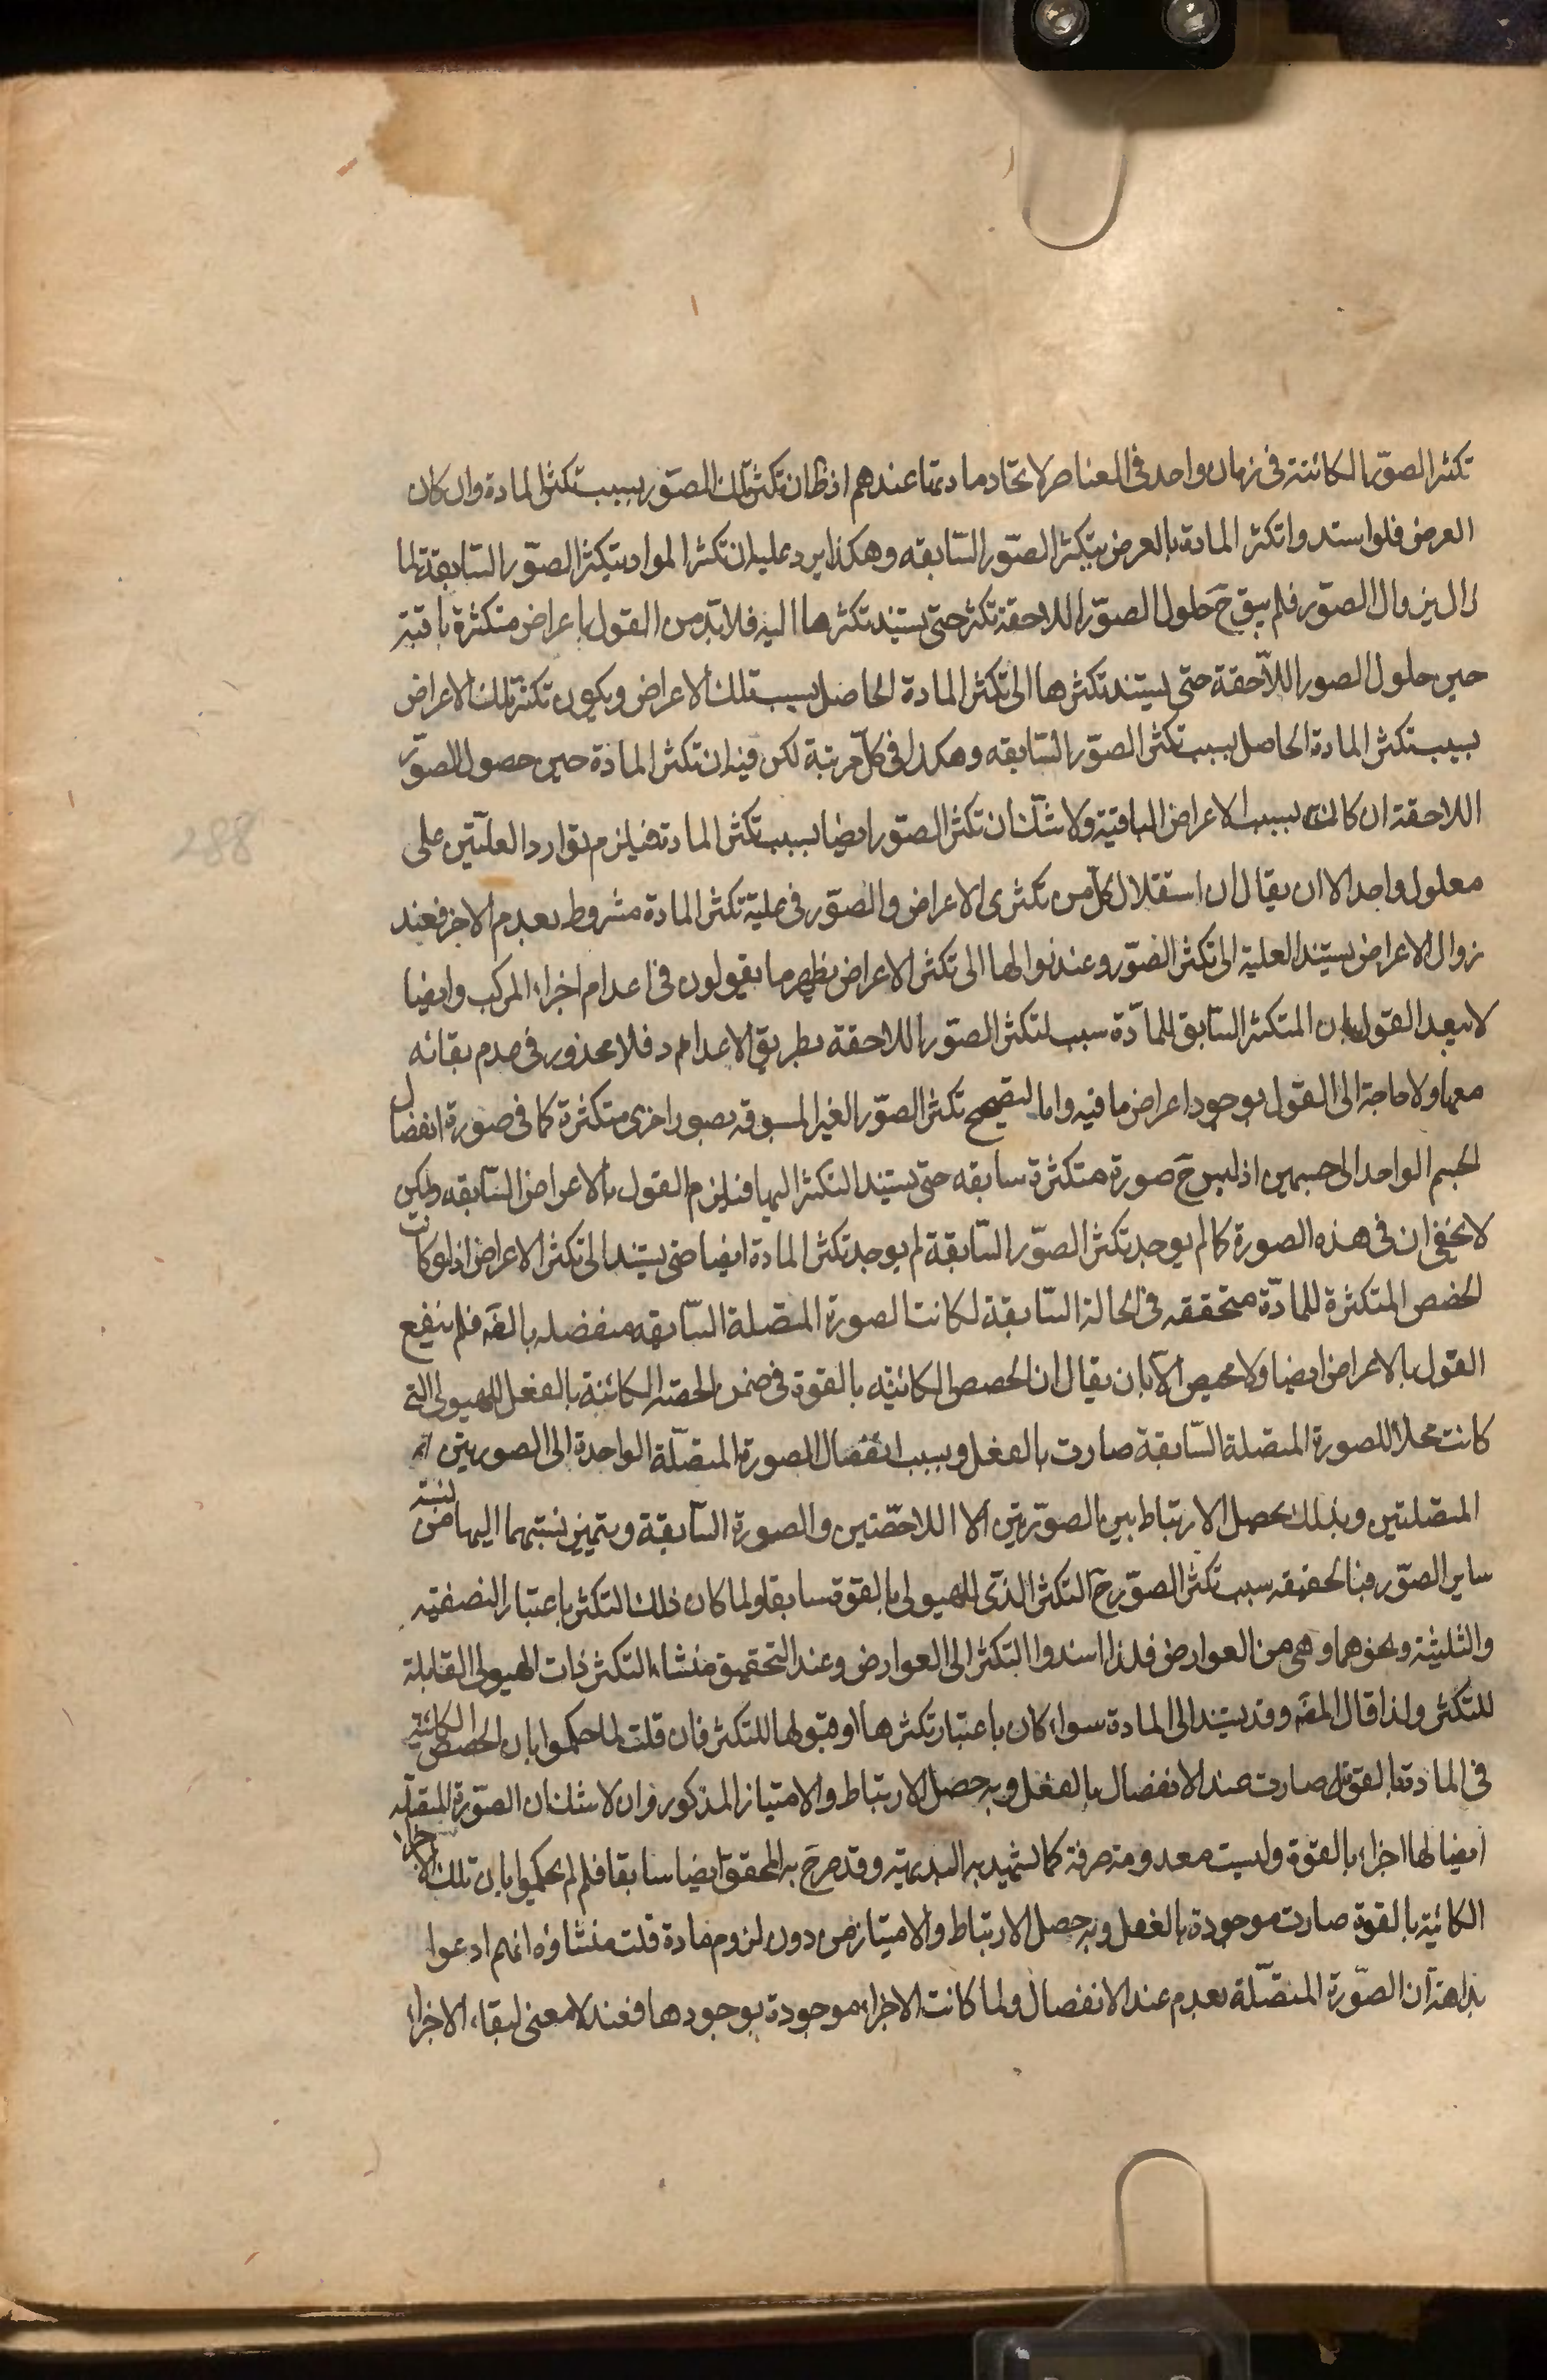 تكثر الصوّر الكائنة في زمان واحد في العناصر لاتحاد مادتها عندهم اذ ظان تكثر تلك الصوّر بسبب تكثر المادة وان كان
العرض فلو استدوا تكثر المادة بالعرض بتكثر الصوّر السّابقه وهكذا يرد عليه ان تكثر المواد بتكثر الصوّر السّابقة لما
زال بزوال الصوّر فلم يبق حَ حلول الصوّر اللاحقة تكثر حتى يستند تكثرها اليه فلا بدّ من القول باعراض متكثرة باقية
حين حلول الصور اللّاحقة حتى يستند تكثرها الى تكثر المادة الحاصل بسبب تلك الاعراض ويكون تكثر تلك الاعراض
بسبب تكثر المادة الحاصل بسبب تكثر الصوّر السّابقه وهكذا في كلّ مرتبة لكن فيه ان تكثر المادة حين حصول الصوّر
اللاحقة ان كانت بسبب الاعراض الباقية ولا شكّ ان تكثر الصوّر ايضا بسبب تكثر المادة فيلزم توارد العلّتين على
معلول واحد الا ان يقال ان استقلال كلّ من تكثرى الاعراض والصوّر في علية تكثر المادة مشروط بعدم الاخر فعند
زوال الاعراض يستند العلية الى تكثر الصوّر وعند زوالها الى تكثر الاعراض نظير ما يقولون في اعدام اجزاء المركب وايضا
لا يبعد القول بان المتكثر السّابق للمادّة سبب لتكثر الصوّر اللاحقة بطريق الاعداد فلا محذور في عدم بقائه
معها ولا حاجة الى القول بوجود اعراض باقيه واما لتصحيح تكثر الصوّر الغير المسبوقه بصور اخرى متكثرة كما في صورة انفصال
الجسم الواحد الى جسمين اذ ليس حَ صورة متكثرة سابقه حتى يستند التكثر اليها فيلزم القول بالاعراض السّابقه ولكن
لا يخفى ان في هذه الصورة كما لم يوجد تكثر الصوّر السّابقة لم يوجد تكثر المادة ايضا حتى يستند الى تكثر الاعراض اذ لو كانت
الحصص المتكثرة للمادّة متحققه في الحالة السّابقة لكانت الصورة المتصلة السّابقه منفصله بالفعل فلم ينفع
القول بالاعراض ايضا ولا محيص الّا بان يقال ان الحصص الكائنه بالقوة في ضمن الحصة الكائنة بالفعل للهيولى التي
كانت محلا للصورة المتصلة السّابقة صارت بالفعل وبسبب انفصال الصورة المتصّلة الواحدة الى الصورتين
المتصلتين وبذلك يحصل الارتباط بين الصوّرتين اللاحقتين والصورة السّابقة ويتميز نسبتهما اليها من نسبة
ساير الصوّر فبالحقيقه سبب تكثر الصوّر حَ التكثر الذى للهيولى بالقوة سابقا ولما كان ذلك التكثر باعتبار النصفية
والثلثية ونحوهما وهى من العوارض فلذا اسندوا التكثر الى العوارض وعند التحقيق منشاء التكثر ذات الهيولى القابلة
للتكثر ولذا قال المصَ وقد يستند الى المادة سواء كان باعتبار تكثرها او قبولها للتكثر فان قلت لما حكموا بان الحصص الكائنة
في المادة بالقوة صارت عند الانفصال بالفعل وبه حصل الارتباط والامتياز المذكور وان لا شك ان الصوّرة المتصّله
ايضا لها اجزاء بالقوة وليست معدومة صرفة كما يشهد به البديهة وقد صرح به المحقق ايضا سابقا فلم لم يحكموا بان تلك الاجزاء
الكائنة بالقوة صارت موجودة بالفعل وبه حصل الارتباط والامتياز من دون لزوم مادة قلت منشاؤه انهم ادعوا
بداهة ان الصّورة المتصّلة يعدم عند الانفصال ولما كانت الاجزاء موجودة بوجودها فعند لا معنى لبقاء الاجزاء
288